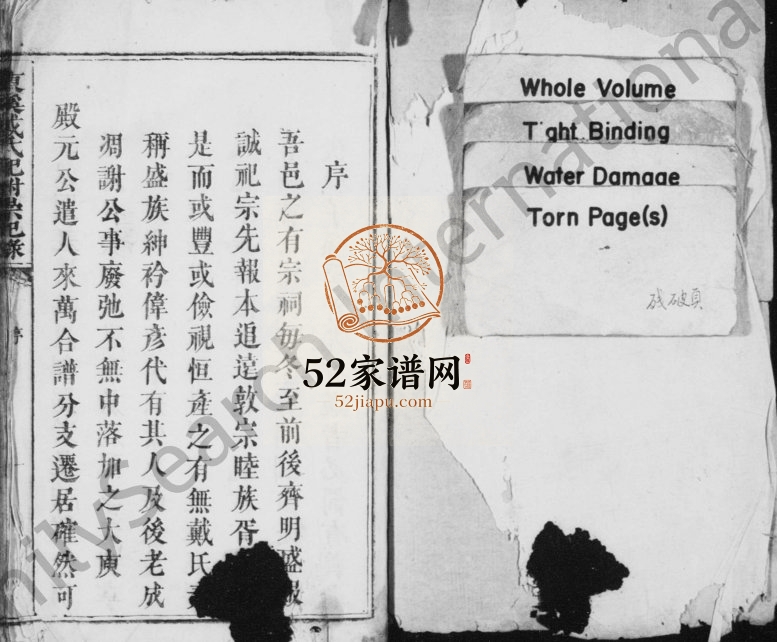 序
吾邑之有宗祠每冬至前後齊明盛服
誠祀宗先報本追遠敦宗睦族胥
是而或豐或儉視恒產之有無戴氏
稱盛族紳衿偉彥代有其人及後老成
凋謝公事廢弛不無中落加之大庾
殿元公遣人來萬合譜分支遷居確然可
戴氏祀
序
Whole Volume
Tight Binding
Water Damage
Torn Page(s)
残破頁
52家谱网
52jiapu.com
FamilySearch International